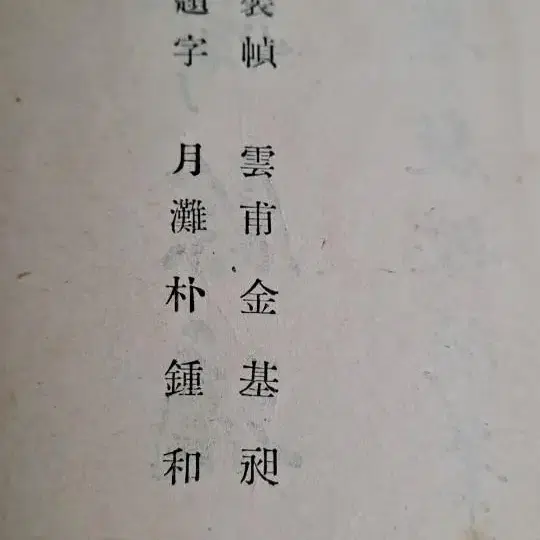 裝幀 雲甫 金基昶
題字 月灘 朴鍾和